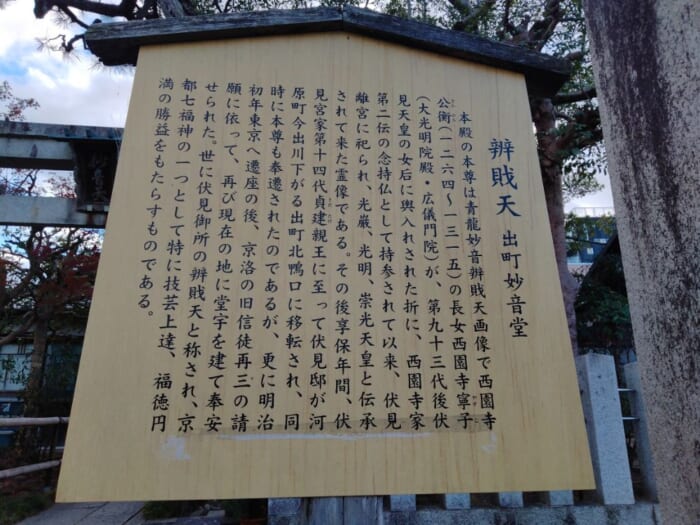 辨戝天 出町妙音堂
本殿の本尊は青龍妙音辨戝天画像で西園寺
公衡(一二六四〜一三一五)の長女西園寺寧子
(大光明院殿・広儀門院)が、第九十三代後伏
見天皇の女后に輿入れされた折に、西園寺家
第二伝の念持仏として持参されて以来、伏見
離宮に祀られ、光厳、光明、崇光天皇と伝承
されて来た霊像である。その後享保年間、伏
見宮家第十四代貞建親王に至って伏見邸が河
原町今出川下がる出町北鴨口に移転され、同
時に本尊も奉遷されたのであるが、更に明治
初年東京へ遷座の後、京洛の旧信徒再三の請
願に依って、再び現在の地に堂宇を建て奉安
せられた。世に伏見御所の辨戝天と称され、京
都七福神の一つとして特に技芸上達、福徳円
満の勝益をもたらすものである。